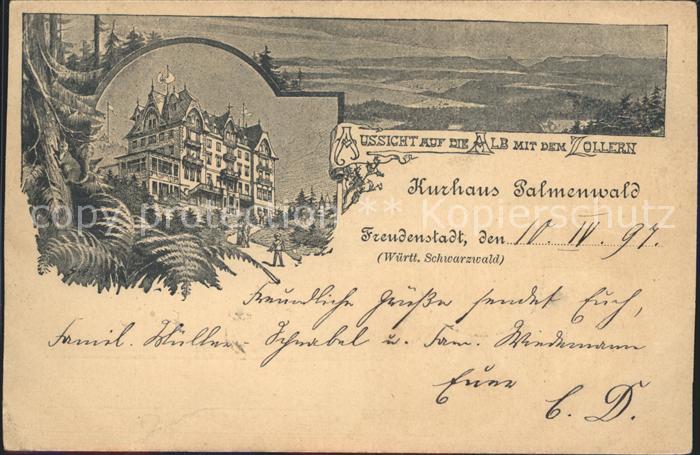 AUSSICHT AUF DIE ALB MIT DEM ZOLLERN
Kurhaus Palmenwald
copy protection Kopierschutz
Freudenstadt, den 10. IV. 97.
(Württ. Schwarzwald)
Freundliche Grüße sendet Euch,
Famil. Müller-Schnabel u. Fam. Wiedemann
Euer
C. D.